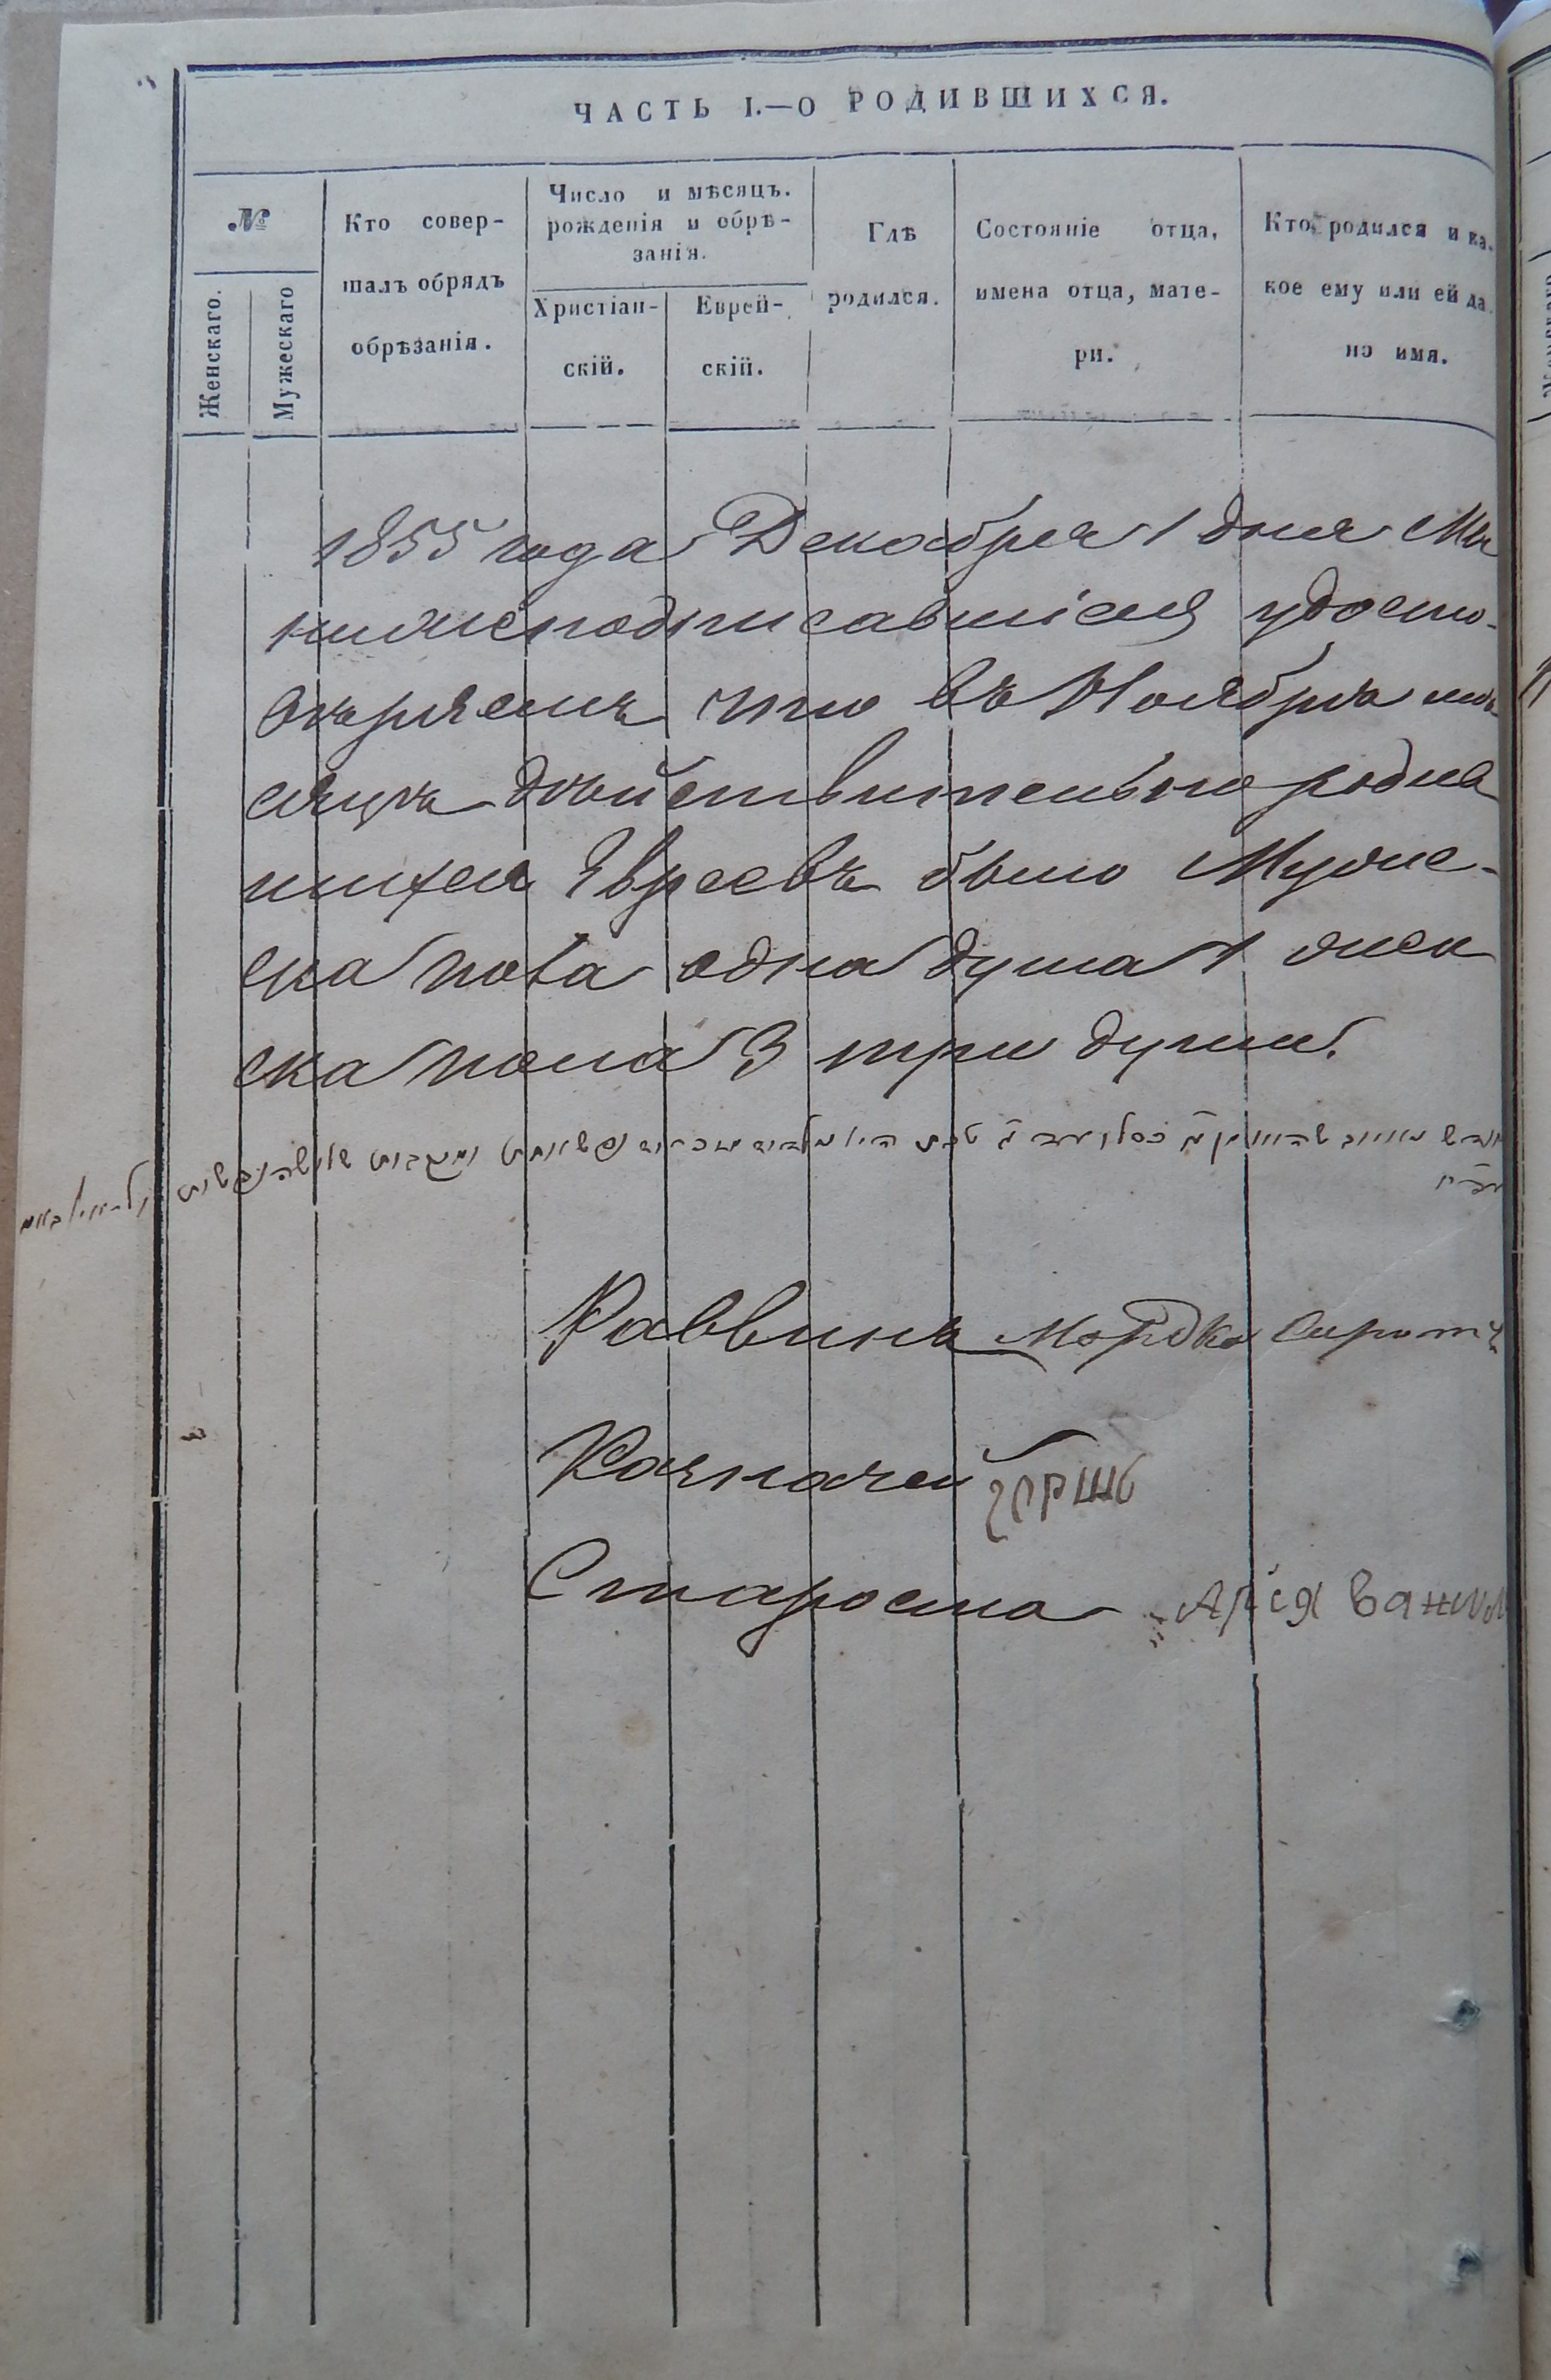 ЧАСТЬ I.—О РОДИВШИХСЯ.
№
Женскаго.
Мужескаго
Кто совер-
шалъ обрядъ
обрѣзанія.
Число и мѣсяцъ.
рожденія и обрѣ-
занія.
Христіан-
скій.
Еврей-
скій.
Гдѣ
родился.
Состояніе отца,
имена отца, мате-
ри.
Кто родился и ка.
кое ему или ей да
но имя.
1855 года Декабря 1 дня Мы
нижеподписавшіеся удосто-
вѣряемъ что въ Ноябрѣ мѣ
сяцѣ дѣйствительно родив
шихся Евреевъ было Муже-
ска пола одна душа 1 женс
ска пола 3 три души.
Раввинъ Мордко
Казначей Горшь
Староста